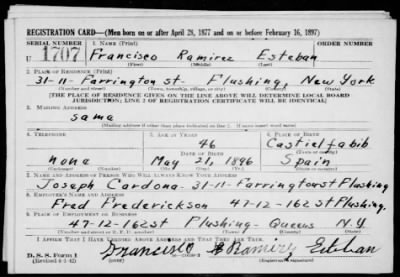 REGISTRATION CARD—(Men born on or after April 28, 1877 and on or before February 16, 1897)
SERIAL NUMBER 1. NAME (Print) ORDER NUMBER
U 1707 Francisco Ramirez Esteban
(First) (Middle) (Last)
2. PLACE OF RESIDENCE (Print)
31-11- Farrington st- Flushing, New York
(Number and street) (Town, township, village, or city) (County) (State)
[THE PLACE OF RESIDENCE GIVEN ON THE LINE ABOVE WILL DETERMINE LOCAL BOARD
JURISDICTION; LINE 2 OF REGISTRATION CERTIFICATE WILL BE IDENTICAL]
3. MAILING ADDRESS
sama
[Mailing address if other than place indicated on line 2. If same insert word same]
4. TELEPHONE 5. AGE IN YEARS 6. PLACE OF BIRTH
46 Castielfabib
DATE OF BIRTH (Town or county)
nona May 21, 1896 Spain
(Exchange) (Number) (Mo.) (Day) (Yr.) (State or country)
7. NAME AND ADDRESS OF PERSON WHO WILL ALWAYS KNOW YOUR ADDRESS
Joseph Cardona- 31-11-Farrington st Flushing
8. EMPLOYER'S NAME AND ADDRESS
Fred Frederickson 47-12-162st Flushing
9. PLACE OF EMPLOYMENT OR BUSINESS
47-12-162st Flushing- Queens N.Y
(Number and street or R. F. D. number) (Town) (County) (State)
I AFFIRM THAT I HAVE VERIFIED ABOVE ANSWERS AND THAT THEY ARE TRUE.
D. S. S. Form 1 Francisco Ramirz Esteban
(Revised 4-1-42) (Registrant's signature)